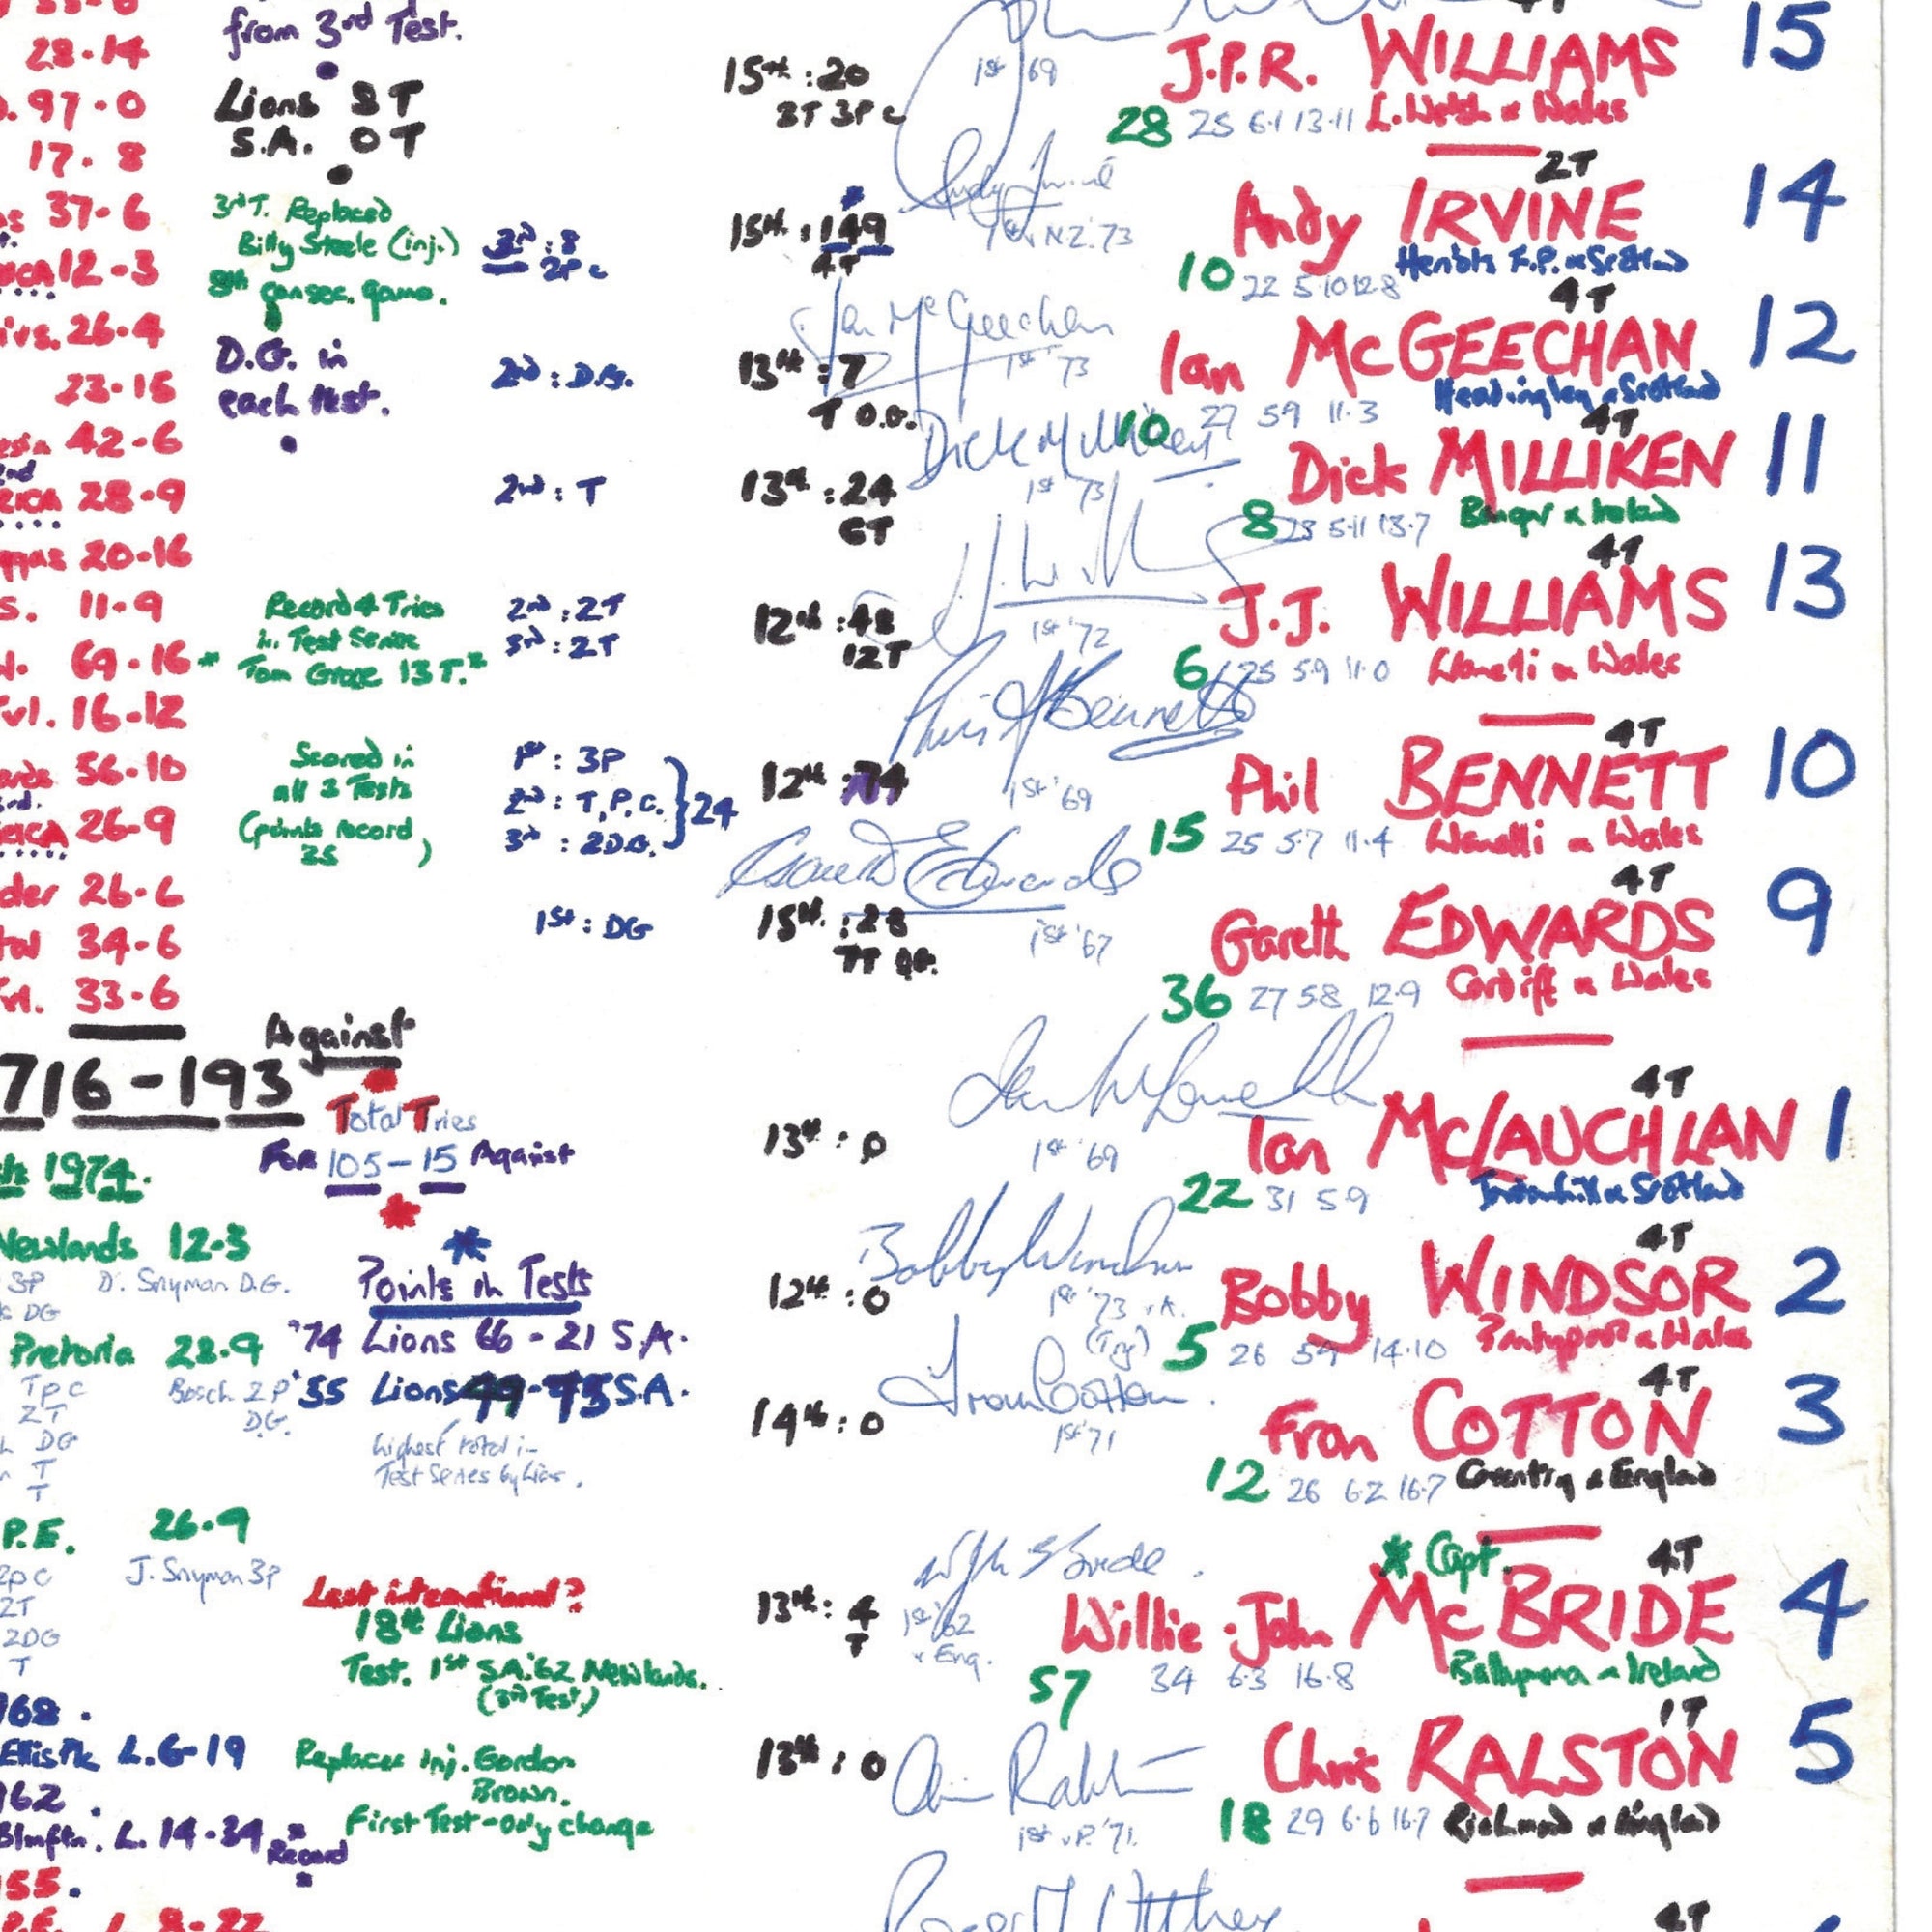 28-14
97-0
17-8
37-6
12-3
26-4
23-15
42-6
28-9
20-16
11-9
69-16 *
16-12
56-10
26-9
26-6
34-6
33-6
716-193
from 3rd Test.
Lions 8T
S.A. 0T
3rd T. Replaced
Billy Steele (inj.)
8th consec. game.
3rd : 8
2P c
D.G. in
each test.
2nd : D.G.
2nd : T
Record 4 Tries
in Test Series
Tom Grace 13 T.*
2nd : 2T
3rd : 2T
Scored in
all 3 Tests
(points record
)
1st : 3P
2nd : T, P, C.
3rd : 2DG.
24
1st : DG
Against
Total Tries
For 105-15 Against
1974.
Newlands 12-3
3P D. Snyman D.G.
DG
Pretoria 28-9
T P C Bosch 2P
2T D.G.
DG
T
T
P.E. 26-9
2T J. Snyman 3P
2DG
T
Points in Tests
'74 Lions 66-21 S.A.
'55 Lions S.A.
highest total in
Test Series by Lions.
Last international?
18th Lions
Test. 1st S.A. '62 Newlands.
(3rd Test)
Ellis Pk L. 6-19
Blmftn. L. 14-34 * Record
P.E.
Replaces inj. Gordon
Brown.
First Test-only change
15th : 20
3T 3P c
1st '69
J.P.R. WILLIAMS 15
28 25 6.1 13.11 L. Welsh & Wales
2T
15th : 149
4T
Andy Irvine
N.Z. '73
Andy IRVINE 14
10 22 5.10 12.8 Heriots F.P. & Scotland
4T
Ian McGeechan
13th : 7
T D.G.
1st '73
Ian McGEECHAN 12
10 27 5.9 11.3 Headingley & Scotland
4T
Dick Milliken
13th : 24
6T
1st '73
Dick MILLIKEN 11
8 23 5.11 13.7 Bangor & Ireland
4T
12th : 48
12T
1st '72
J.J. WILLIAMS 13
6 25 5.9 11.0 Llanelli & Wales
4T
Phil Bennett
12th : 74
1st '69
Phil BENNETT 10
15 25 5.7 11.4 Llanelli & Wales
4T
Gareth Edwards
15th : 28
7T
1st '67
Gareth EDWARDS 9
36 27 5.8 12.9 Cardiff & Wales
4T
Ian McLauchlan
13th : 0
1st '69
Ian McLAUCHLAN 1
22 31 5.9 Jordanhill & Scotland
4T
Bobby Windsor
12th : 0
1st '73 v A.
(Try)
Bobby WINDSOR 2
5 26 5.9 14.10 Pontypool & Wales
4T
Fran Cotton
14th : 0
1st '71
Fran COTTON 3
12 26 6.2 16.7 Coventry & England
* Capt. 4T
13th : 4
T
1st '62
v Eng.
Willie-John McBRIDE 4
57 34 6.3 16.8 Ballymena & Ireland
1T
13th : 0
Chris Ralston
1st v P. '71.
Chris RALSTON 5
18 29 6.6 16.7 Richmond & England
4T
Roger M Uttley